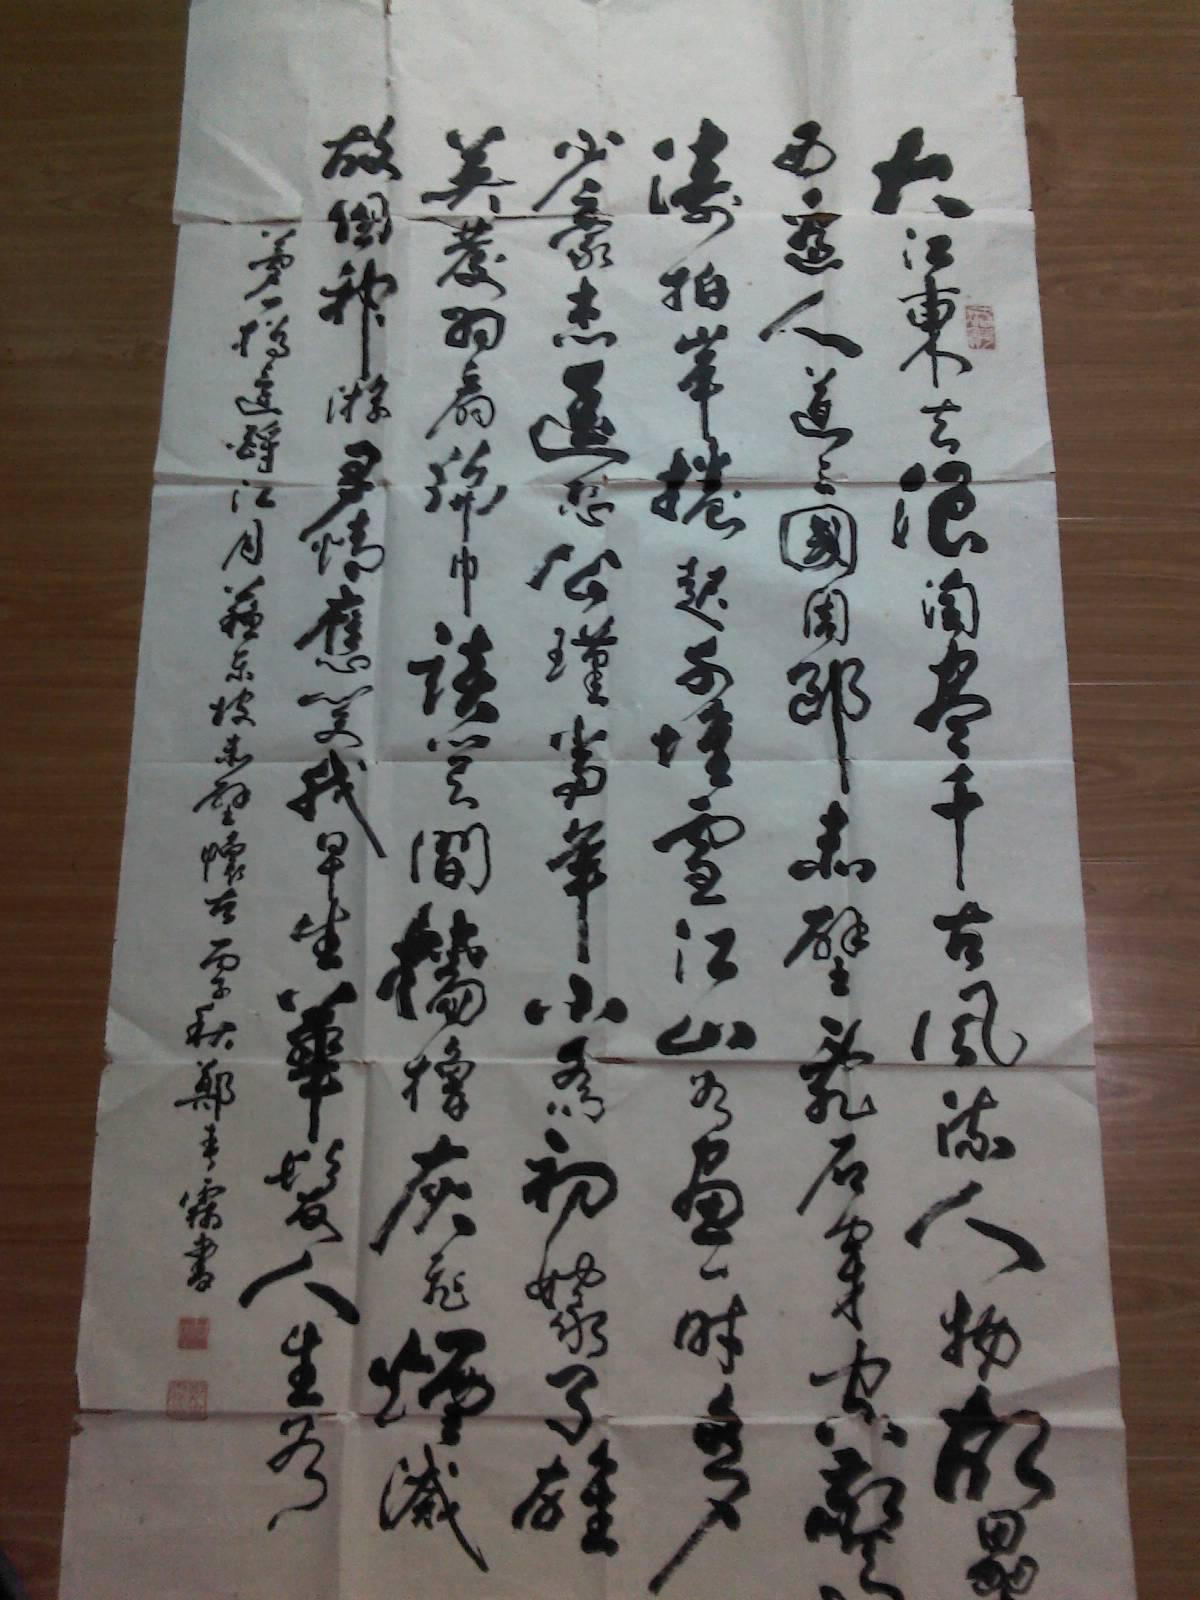 大江東去浪淘盡千古風流人物故壘
西邊人道三國周郎赤壁亂石穿空驚
濤拍岸捲起千堆雪江山如畫一時多
少豪杰遙想公瑾當年小喬初嫁了雄
英發羽扇綸巾談笑間檣櫓灰飛煙滅
故國神游多情應笑我早生華髮人生如
夢一樽還酹江月蘇東坡赤壁懷古 秋鄭青霖書